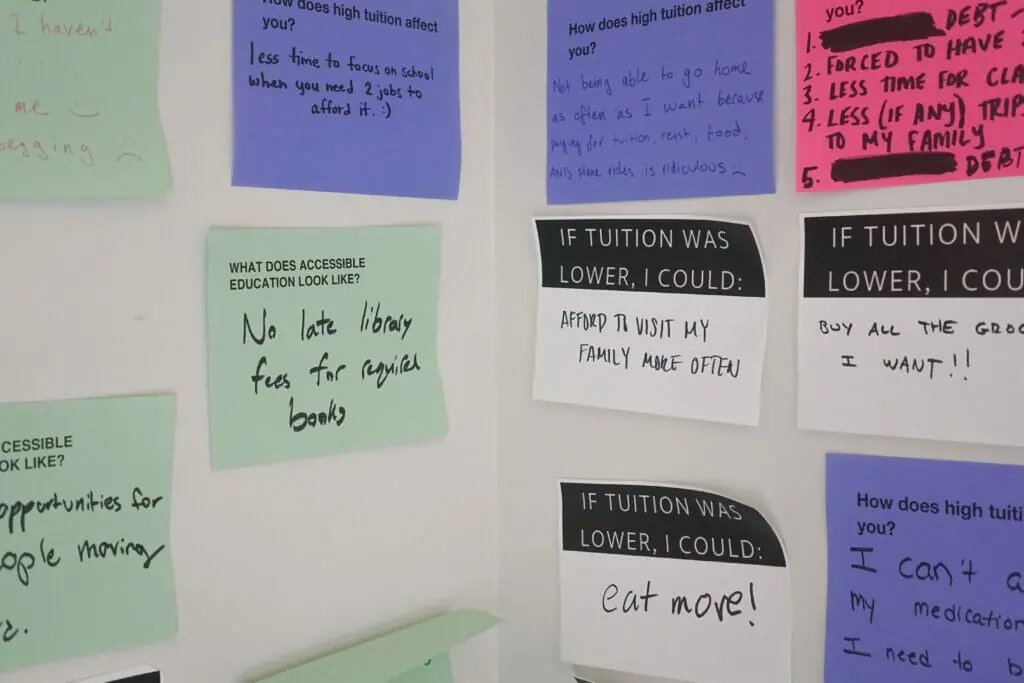 I haven't
me
begging
How does high tuition affect
you?
less time to focus on school
when you need 2 jobs to
afford it. :)
How does high tuition affect
you?
Not being able to go home
as often as I want because
paying for tuition, rent, food,
AND plane rides is ridiculous
you?
1. DEBT
2. FORCED TO HAVE
3. LESS TIME FOR
4. LESS (IF ANY) TRIPS
TO MY FAMILY
5. DEBT
WHAT DOES ACCESSIBLE
EDUCATION LOOK LIKE?
No late library
fees for required
books
IF TUITION WAS
LOWER, I COULD:
AFFORD TO VISIT MY
FAMILY MORE OFTEN
IF TUITION W
LOWER, I COU
BUY ALL THE GROC
I WANT!!
CCESSIBLE
OK LIKE?
opportunities for
ople moving
IF TUITION WAS
LOWER, I COULD:
eat more!
How does high tuiti
you?
I can't a
my medication
I need to b